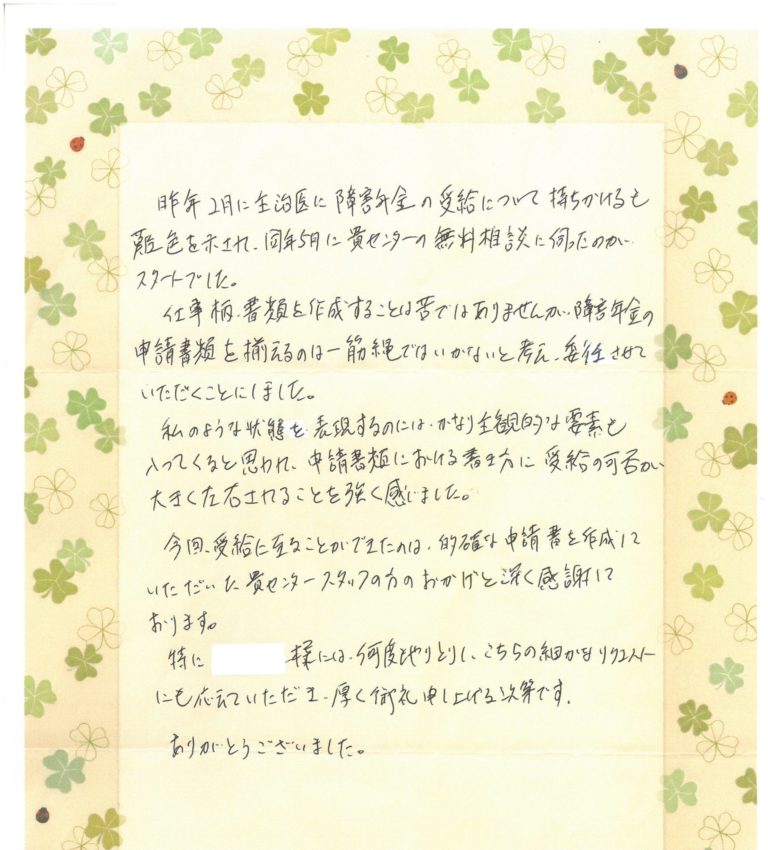 昨年2月に主治医に障害年金の受給について持ちかけるも
難色を示され、同年5月に貴センターの無料相談に伺ったのが
スタートでした。
仕事柄、書類を作成することは苦ではありませんが、障害年金の
申請書類を揃えるのは一筋縄ではいかないと考え、委任させて
いただくことにしました。
私のような状態を表現するのには、かなり主観的な要素も
入ってくると思われ、申請書類における書き方に受給の可否が
大きく左右されることを強く感じました。
今回、受給に至ることができたのは、的確な申請書を作成して
いただいた貴センタースタッフの方のおかげと深く感謝して
おります。
特に 様には、何度もやりとりし、こちらの細かなリクエスト
にも応えていただき、厚く御礼申し上げる次第です。
ありがとうございました。